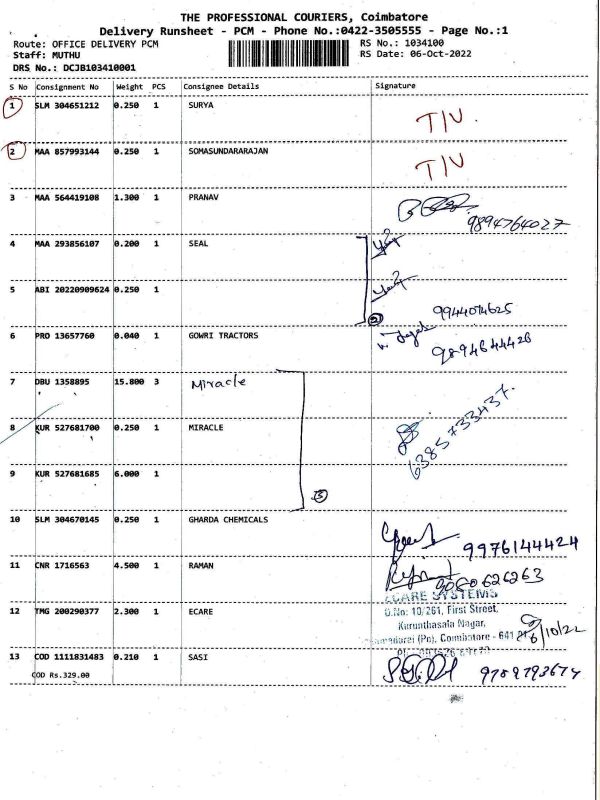 THE PROFESSIONAL COURIERS, Coimbatore
Delivery Runsheet - PCM - Phone No.:0422-3505555 - Page No.:1
Route: OFFICE DELIVERY PCM RS No.: 1034100
Staff: MUTHU RS Date: 06-Oct-2022
DRS No.: DCJB103410001
S No Consignment No Weight PCS Consignee Details Signature
1 SLM 304651212 0.250 1 SURYA T/V.
2 MAA 857993144 0.250 1 SOMASUNDARARAJAN T/V
3 MAA 564419108 1.300 1 PRANAV 9894764027
4 MAA 293856107 0.200 1 SEAL
5 ABI 20220909624 0.250 1
2 9944074625
6 PRO 13657760 0.040 1 GOWRI TRACTORS 9894644426
7 DBU 1358895 15.800 3 Miracle
8 KUR 527681700 0.250 1 MIRACLE 6385733437.
9 KUR 527681685 6.000 1
3
10 SLM 304670145 0.250 1 GHARDA CHEMICALS 9976144424
11 CNR 1716563 4.500 1 RAMAN 9080626263
ECARE SYSTEMS
12 TMG 200290377 2.300 1 ECARE D.No: 10/261, First Street,
Kurunthasala Nagar,
(Po), Coimbatore - 641 6/10/22
13 COD 1111831483 0.210 1 SASI 9789793674
COD Rs.329.00